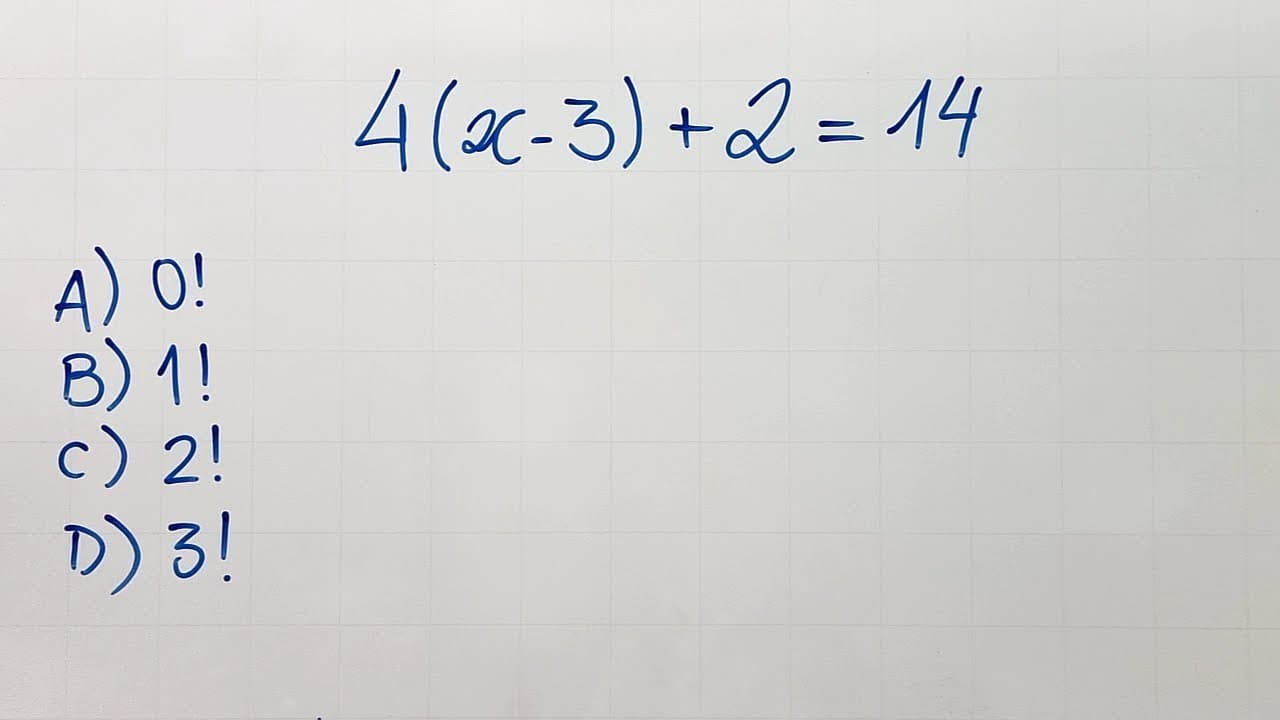 4(x-3)+2=14
A) 0!
B) 1!
C) 2!
D) 3!